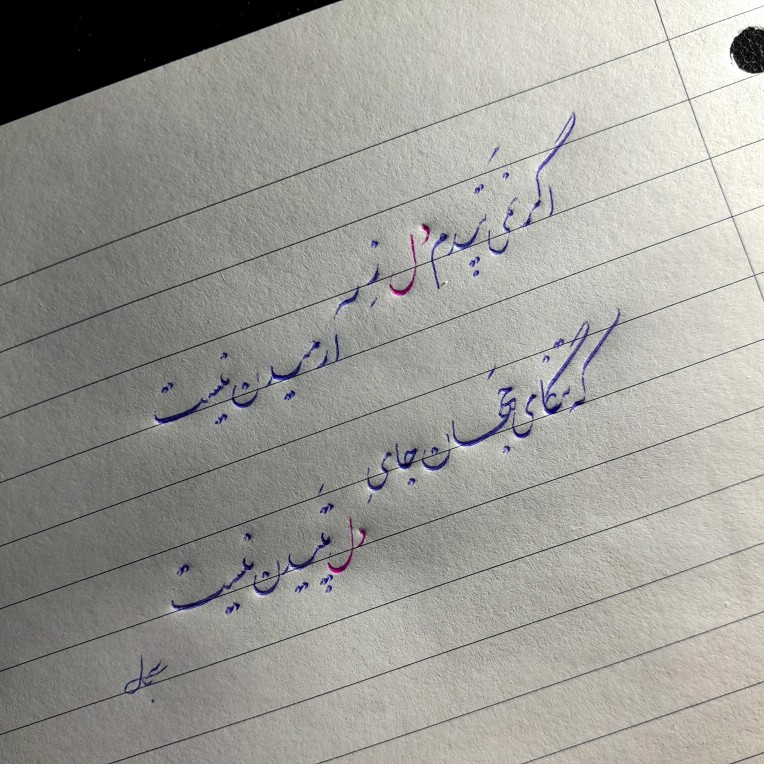 اگر نمی تَپدم دل زِ
آرمیدن نیست
که تنگنای جَهان جایِ
دل تَپیدن نیست